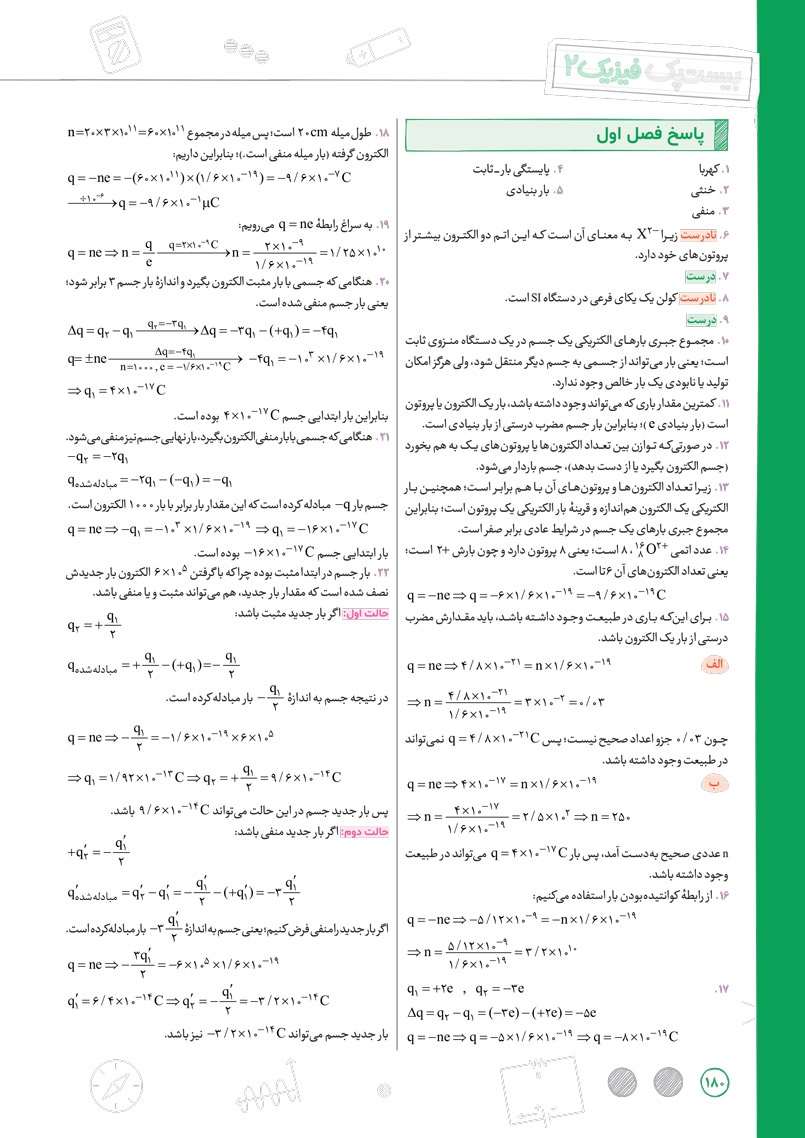 بیست‌پک فیزیک ۲
پاسخ فصل اول
۱. کهربا
۲. خنثی
۳. منفی
۴. پایستگی بار ـ ثابت
۵. بار بنیادی
۶. نادرست زیرا X²⁻ به معنای آن است که این اتم دو الکترون بیشتر از
پروتون‌های خود دارد.
۷. درست
۸. نادرست کولن یک یکای فرعی در دستگاه SI است.
۹. درست
۱۰. مجموع جبری بارهای الکتریکی یک جسم در یک دستگاه منزوی ثابت
است؛ یعنی بار می‌تواند از جسمی به جسم دیگر منتقل شود، ولی هرگز امکان
تولید یا نابودی یک بار خالص وجود ندارد.
۱۱. کمترین مقدار باری که می‌تواند وجود داشته باشد، بار یک الکترون یا پروتون
است (بار بنیادی e)؛ بنابراین بار جسم مضرب درستی از بار بنیادی است.
۱۲. در صورتی‌که توازن بین تعداد الکترون‌ها یا پروتون‌های یک به هم بخورد
(جسم الکترون بگیرد یا از دست بدهد)، جسم باردار می‌شود.
۱۳. زیرا تعداد الکترون‌ها و پروتون‌های آن با هم برابر است؛ همچنین بار
الکتریکی یک الکترون هم‌اندازه و قرینهٔ بار الکتریکی یک پروتون است؛ بنابراین
مجموع جبری بارهای یک جسم در شرایط عادی برابر صفر است.
۱۴. عدد اتمی ¹⁶₈O²⁺، ۸ است؛ یعنی ۸ پروتون دارد و چون بارش ۲+ است؛
یعنی تعداد الکترون‌های آن ۶ تا است.
q = −ne ⇒ q = −۶×۱/۶×۱۰⁻¹⁹ = −۹/۶×۱۰⁻¹⁹ C
۱۵. برای این‌که باری در طبیعت وجود داشته باشد، باید مقدارش مضرب
درستی از بار یک الکترون باشد.
الف q = ne ⇒ ۴/۸×۱۰⁻²¹ = n×۱/۶×۱۰⁻¹⁹
⇒ n = (۴/۸×۱۰⁻²¹)/(۱/۶×۱۰⁻¹⁹) = ۳×۱۰⁻² = ۰/۰۳
چون ۰/۰۳ جزو اعداد صحیح نیست؛ پس q = ۴/۸×۱۰⁻²¹ C نمی‌تواند
در طبیعت وجود داشته باشد.
ب q = ne ⇒ ۴×۱۰⁻¹⁷ = n×۱/۶×۱۰⁻¹⁹
⇒ n = (۴×۱۰⁻¹⁷)/(۱/۶×۱۰⁻¹⁹) = ۲/۵×۱۰² ⇒ n = ۲۵۰
n عددی صحیح به‌دست آمد، پس بار q = ۴×۱۰⁻¹⁷ C می‌تواند در طبیعت
وجود داشته باشد.
۱۶. از رابطهٔ کوانتیده‌بودن بار استفاده می‌کنیم:
q = −ne ⇒ −۵/۱۲×۱۰⁻⁹ = −n×۱/۶×۱۰⁻¹⁹
⇒ n = (۵/۱۲×۱۰⁻⁹)/(۱/۶×۱۰⁻¹⁹) = ۳/۲×۱۰¹⁰
۱۷. q₁ = +۲e , q₂ = −۳e
Δq = q₂ − q₁ = (−۳e) − (+۲e) = −۵e
q = −ne ⇒ q = −۵×۱/۶×۱۰⁻¹⁹ ⇒ q = −۸×۱۰⁻¹⁹ C
۱۸. طول میله ۲۰cm است؛ پس میله در مجموع n = ۲۰×۳×۱۰¹¹ = ۶۰×۱۰¹¹
الکترون گرفته (بار میله منفی است.)؛ بنابراین داریم:
q = −ne = −(۶۰×۱۰¹¹)×(۱/۶×۱۰⁻¹⁹) = −۹/۶×۱۰⁻⁷ C
÷۱۰⁻⁶→ q = −۹/۶×۱۰⁻¹ μC
۱۹. به سراغ رابطهٔ q = ne می‌رویم:
q = ne ⇒ n = q/e q=۲×۱۰⁻⁹C→ n = (۲×۱۰⁻⁹)/(۱/۶×۱۰⁻¹⁹) = ۱/۲۵×۱۰¹⁰
۲۰. هنگامی که جسمی با بار مثبت الکترون بگیرد و اندازهٔ بار جسم ۳ برابر شود؛
یعنی بار جسم منفی شده است.
Δq = q₂ − q₁ q₂=−۳q₁→ Δq = −۳q₁ − (+q₁) = −۴q₁
q = ±ne Δq=−۴q₁ n=۱۰۰۰ , e=−۱/۶×۱۰⁻¹⁹C→ −۴q₁ = −۱۰³×۱/۶×۱۰⁻¹⁹
⇒ q₁ = ۴×۱۰⁻¹⁷ C
بنابراین بار ابتدایی جسم ۴×۱۰⁻¹⁷ C بوده است.
۲۱. هنگامی‌که جسمی با بار منفی الکترون بگیرد، بار نهایی جسم نیز منفی می‌شود.
−q₂ = −۲q₁
q مبادله‌شده = −۲q₁ − (−q₁) = −q₁
جسم بار −q مبادله کرده است که این مقدار بار برابر با بار ۱۰۰۰ الکترون است.
q = ne ⇒ −q₁ = −۱۰³×۱/۶×۱۰⁻¹⁹ ⇒ q₁ = −۱۶×۱۰⁻¹⁷ C
بار ابتدایی جسم −۱۶×۱۰⁻¹⁷ C بوده است.
۲۲. بار جسم در ابتدا مثبت بوده چراکه با گرفتن ۶×۱۰⁵ الکترون بار جدیدش
نصف شده است که مقدار بار جدید، هم می‌تواند مثبت و یا منفی باشد.
حالت اول: اگر بار جدید مثبت باشد:
q₂ = +q₁/۲
q مبادله‌شده = +q₁/۲ − (+q₁) = −q₁/۲
در نتیجه جسم به اندازهٔ −q₁/۲ بار مبادله کرده است.
q = ne ⇒ −q₁/۲ = −۱/۶×۱۰⁻¹⁹×۶×۱۰⁵
⇒ q₁ = ۱/۹۲×۱۰⁻¹³ C ⇒ q₂ = +q₁/۲ = ۹/۶×۱۰⁻¹⁴ C
پس بار جدید جسم در این حالت می‌تواند ۹/۶×۱۰⁻¹⁴ C باشد.
حالت دوم: اگر بار جدید منفی باشد:
+q′₂ = −q′₁/۲
q′ مبادله‌شده = q′₂ − q′₁ = −q′₁/۲ − (+q′₁) = −۳q′₁/۲
اگر بار جدید را منفی فرض کنیم؛ یعنی جسم به اندازهٔ −۳q′₁/۲ بار مبادله کرده است.
q = ne ⇒ −۳q′₁/۲ = −۶×۱۰⁵×۱/۶×۱۰⁻¹⁹
q′₁ = ۶/۴×۱۰⁻¹⁴ C ⇒ q′₂ = −q′₁/۲ = −۳/۲×۱۰⁻¹⁴ C
بار جدید جسم می‌تواند −۳/۲×۱۰⁻¹⁴ C نیز باشد.
۱۸۰